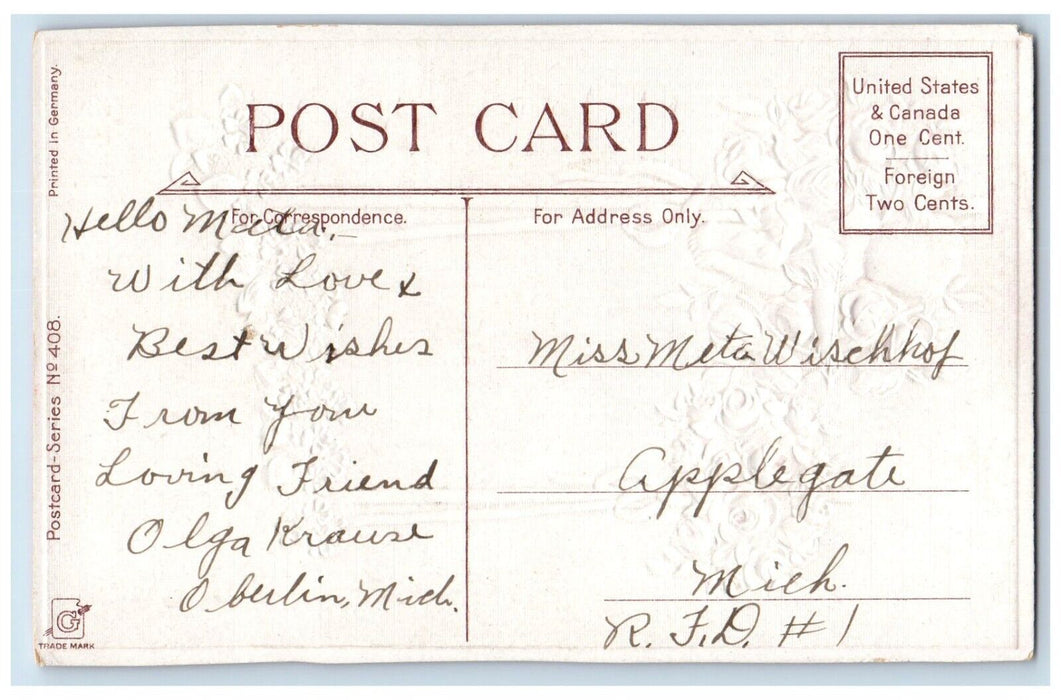 Printed in Germany.
Postcard-Series No 408.
G
TRADE MARK
POST CARD
United States
& Canada
One Cent.
Foreign
Two Cents.
For Correspondence.
For Address Only.
Hello Meta,—
With Love &
Best Wishes
From Your
Loving Friend
Olga Krause
Oberlin, Mich.
Miss Meta Wischhof
Applegate
Mich.
R. F. D. #1